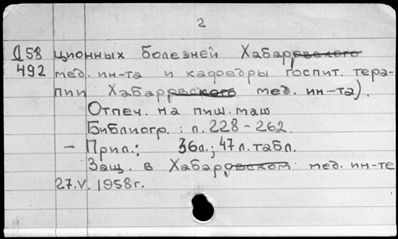 2
Д58 ционных болезней Хабаровского
492 мед. ин-та и кафедры госпит. тера-
пии Хабаровского мед. ин-та).
Отпеч. на пиш. маш
Библиогр.: л. 228-262.
- Прил.: 36л.; 47 л. табл.
Защ. в Хабаровском мед. ин-те
27.V. 1958г.